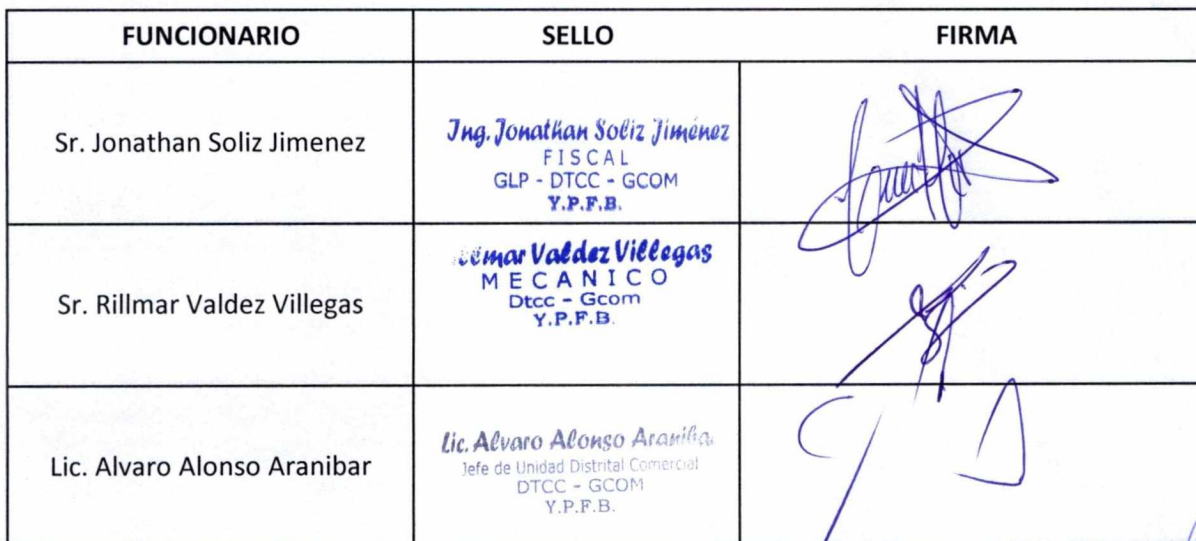 FUNCIONARIO SELLO FIRMA
Sr. Jonathan Soliz Jimenez
Ing. Jonathan Soliz Jiménez
FISCAL
GLP - DTCC - GCOM
Y.P.F.B.
Sr. Rillmar Valdez Villegas
Valdez Villegas
MECANICO
Dtcc - Gcom
Y.P.F.B.
Lic. Alvaro Alonso Aranibar
Lic. Alvaro Alonso
Jefe de Unidad Distrital Comercial
DTCC - GCOM
Y.P.F.B.